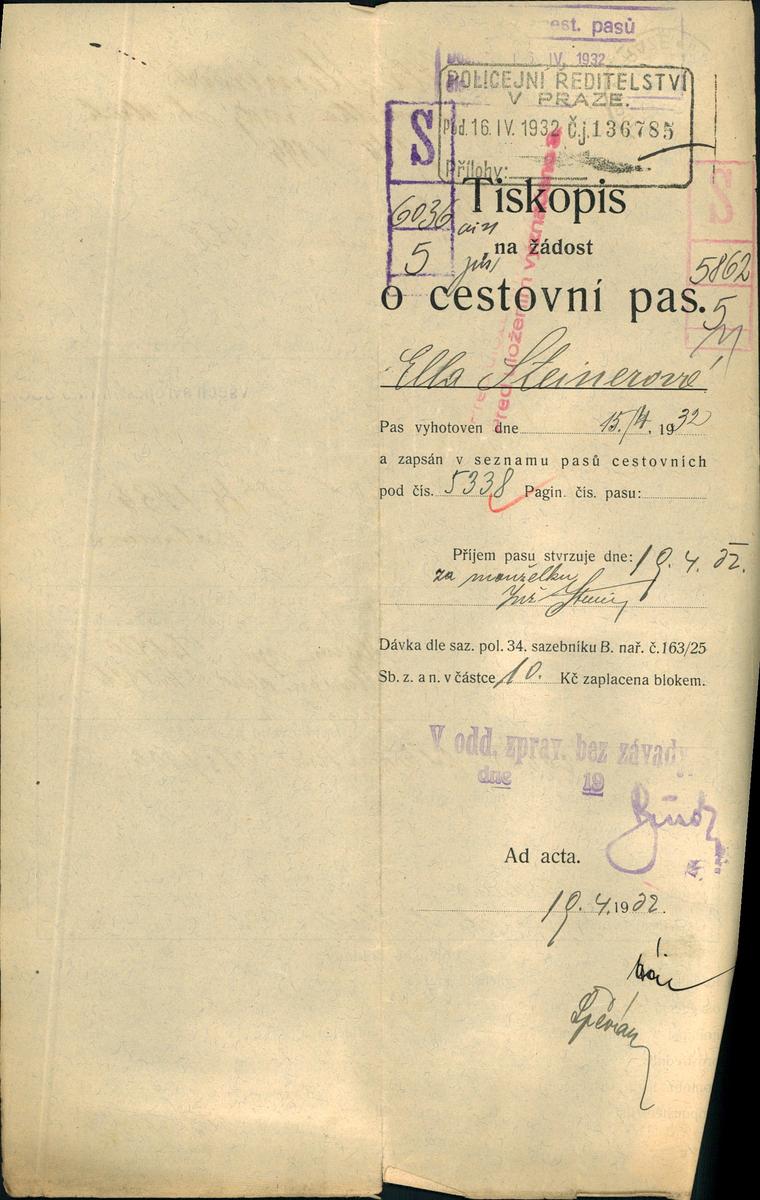 est. pasů
IV. 1932
POLICEJNÍ ŘEDITELSTVÍ
V PRAZE.
Pod. 16. IV. 1932 Č.j. 136785
Přílohy:
S
6036
5
Tiskopis
na žádost
o cestovní pas.
S
5862
5
Před uložením vyznačena
Ella Steinerová
Pas vyhotoven dne 15./4. 1932
a zapsán v seznamu pasů cestovních
pod čís. 5338 Pagin. čís. pasu:
Příjem pasu stvrzuje dne: 19. 4. 32.
za manželku
Dávka dle saz. pol. 34. sazebníku B. nař. č. 163/25
Sb. z. a n. v částce 10. Kč zaplacena blokem.
V odd. zprav. bez závady
dne 19
Ad acta.
19. 4. 1932.